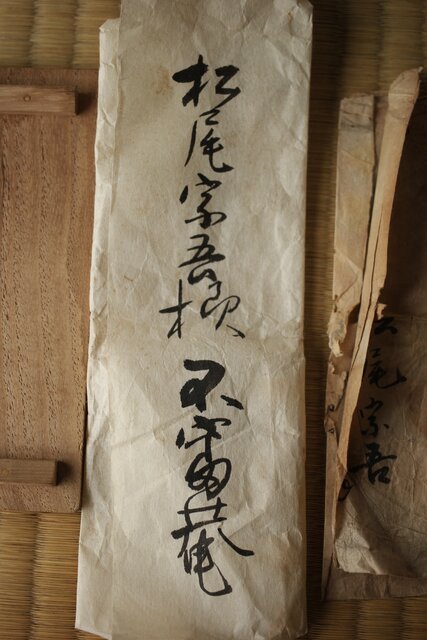 松尾宗吾様 不審菴
尾宗吾